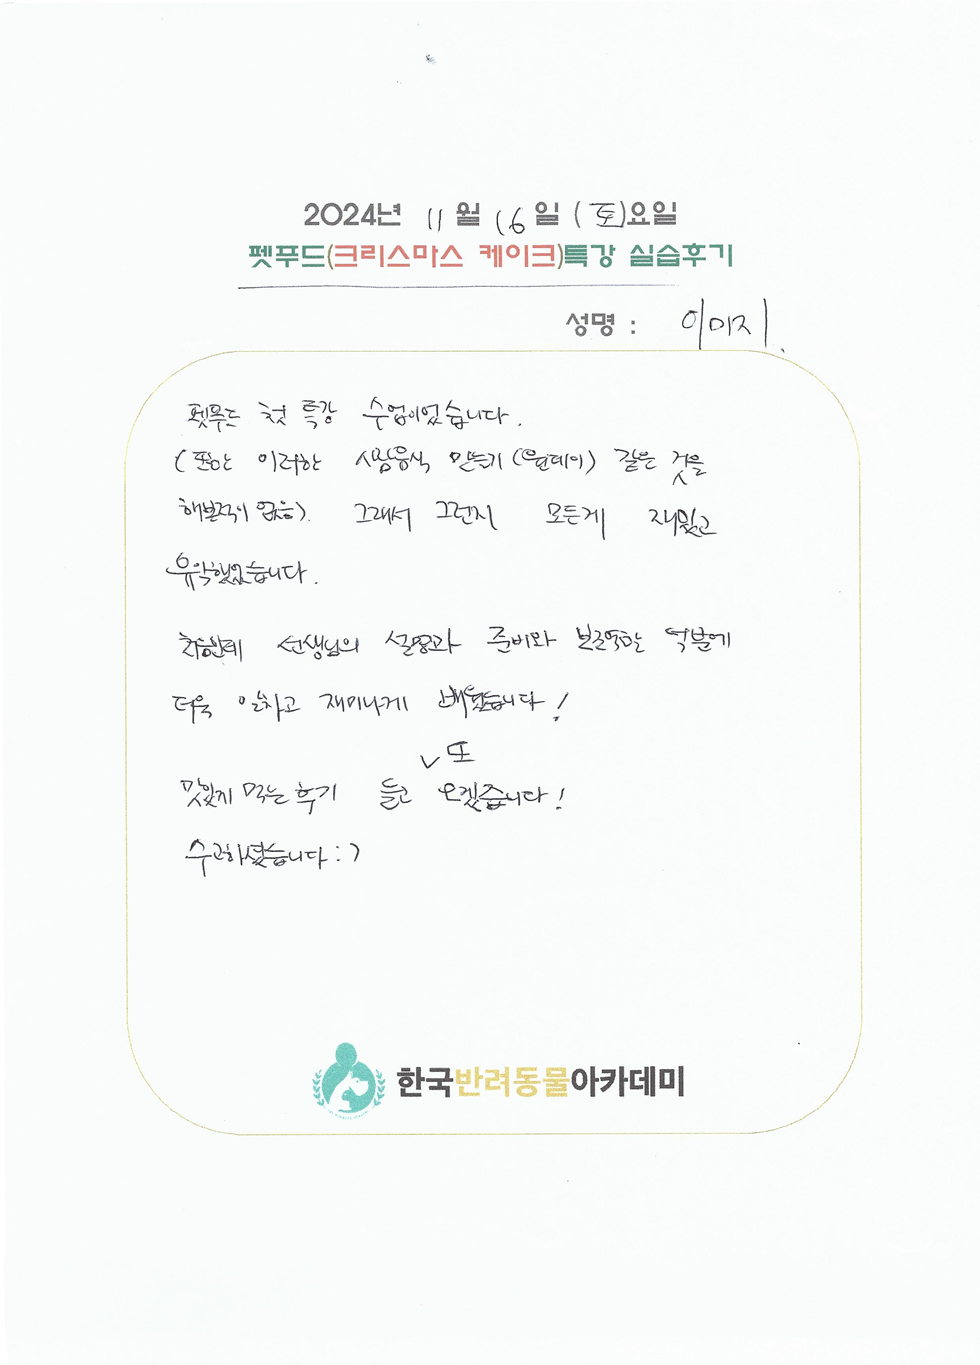 2024년 11월 16일 (토)요일
펫푸드(크리스마스 케이크)특강 실습후기
성명 : 이미지
펫푸드 첫 특강 수업이었습니다.
(또는 이러한 사람음식 만들기(원데이) 같은 것을
해본적이 없음). 그래서 그런지 모든게 재밌고
유익했었습니다.
선생님의 설명과 준비와 덕분에
더욱 알차고 재미나게 배웠습니다!
또
맛있게 먹는 후기 들고 오겠습니다!
수고하셨습니다 : )
한국반려동물아카데미